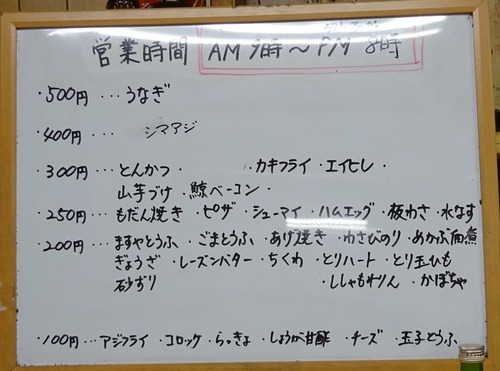 営業時間 AM 9時〜PM 8時
・500円 … うなぎ
・400円 … シマアジ
・300円 … とんかつ ・カキフライ ・エイヒレ ・
山芋づけ ・鯨ベーコン ・
・250円 … もだん焼き ・ピザ ・シューマイ ・ハムエッグ ・板わさ ・水なす
・200円 … ますやとうふ ・ごまとうふ ・あげ焼き ・わさびのり ・めかぶ佃煮
ぎょうざ ・レーズンバター ・ちくわ ・とりハート ・とり玉ひも
砂ずり ・ししゃもみりん ・かぼちゃ
・100円 … アジフライ ・コロッケ ・らっきょ ・しょうが甘酢 ・チーズ ・玉子とうふ